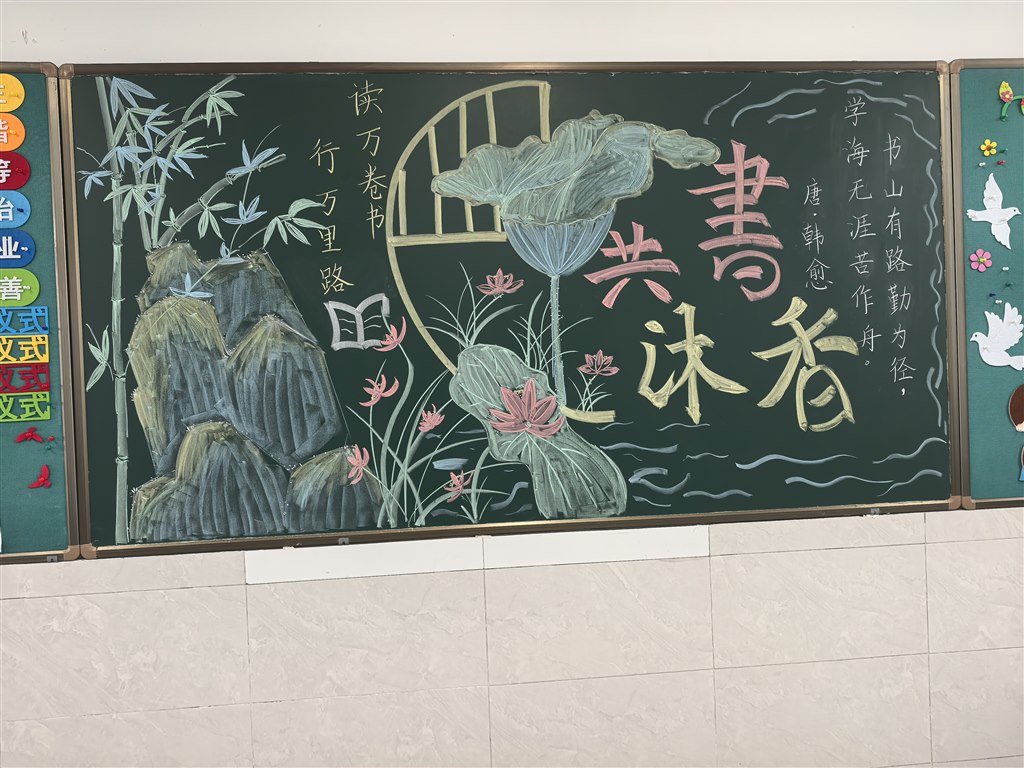 读万卷书
行万里路
共
書
沐
香
书山有路勤为径，
学海无涯苦作舟。
唐·韩愈
谐
等
治
业
善
仪式
仪式
仪式
仪式